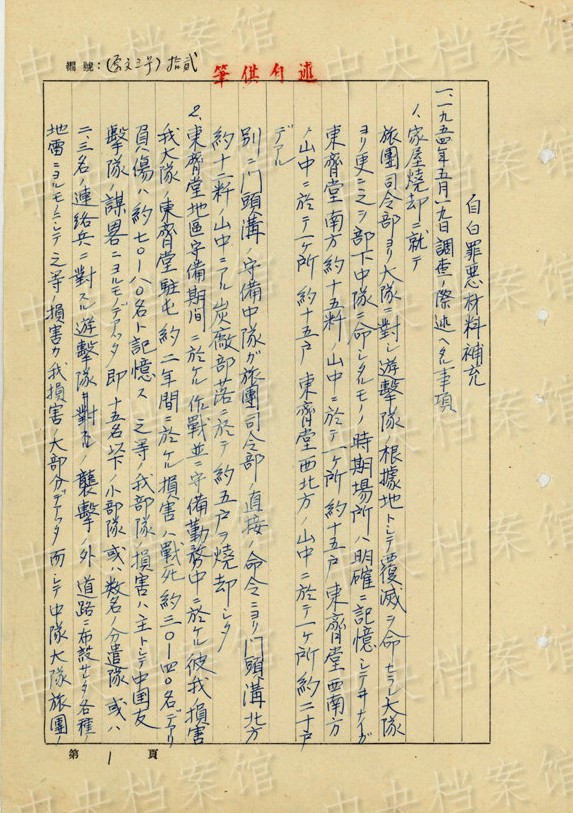 編號：(原文三号) 拾貳
筆供自述
自白罪惡材料補充
一、一九五四年五月一九日調査ノ際述ヘタル事項
1、家屋燒却ニ就テ
旅團司令部ヨリ大隊ニ對シ遊擊隊ノ根據地トシテ覆滅ヲ命セラレ大隊
ヨリ更ニ之ヲ部下中隊ニ命シタルモノノ時期場所ハ明確ニ記憶シテヰナイガ
東齊堂南方約十五粁ノ山中ニ於テ一ヶ所約十五戸 東齊堂西南方
ノ山中ニ於テ一ヶ所約十五戸 東齊堂西北方ノ山中ニ於テ一ヶ所約二十戸
デアル
別ニ門頭溝ノ守備中隊ガ旅團司令部ノ直接ノ命令ニヨリ門頭溝北方
約十二粁ノ山中ニアル炭廠部落ニ於テ約五戸ヲ燒却シタ
2、東齊堂地區守備期間ニ於ケル作戰並ニ守備勤務中ニ於ケル彼我ノ損害
我大隊ノ東齊堂駐屯約二年間ニ於ケル損害ハ戰死約三〇-四〇名デアリ
負傷ハ約七〇-八〇名ト記憶ス 之等ノ我部隊ノ損害ハ主トシテ中国友
擊隊ノ謀畧ニヨルモノデアッタ 即十五名以下ノ小部隊或ハ数名ノ分遣隊或ハ
二、三名ノ連絡兵ニ對スル遊擊隊ノ襲擊ノ外道路ニ布設サレタ各種ノ
地雷ニヨルモノトシテ之等ノ損害ガ我損害ノ大部分デアッタ 而シテ中隊大隊旅團ノ
第 1 頁
中央档案馆